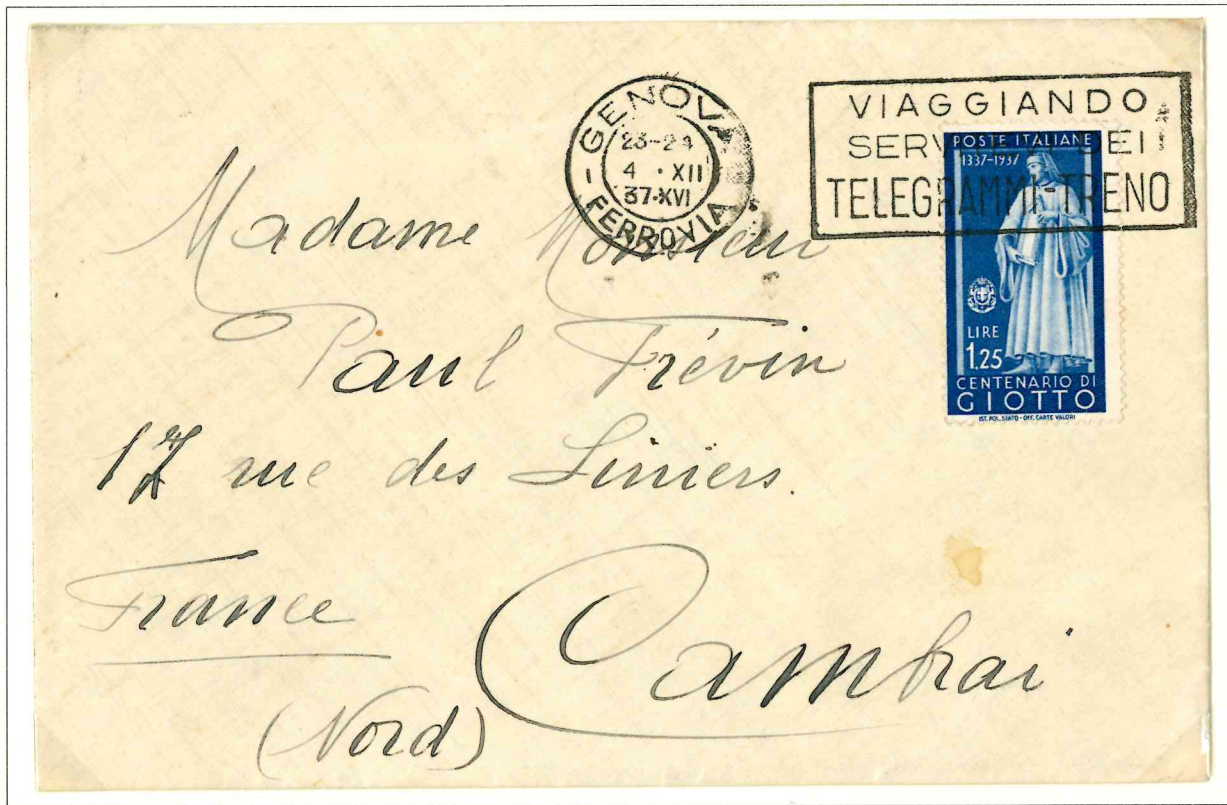 GENOVA
23-24
4 · XII
37·XVI
FERROVIA
VIAGGIANDO
SERVITEVI DEI
TELEGRAMMI-TRENO
POSTE ITALIANE
1337-1937
LIRE
1,25
CENTENARIO DI
GIOTTO
IST. POL. STATO - OFF. CARTE VALORI
Madame Monsieur
Paul Frévin
17 rue des Liniers.
France
Cambrai
(Nord)